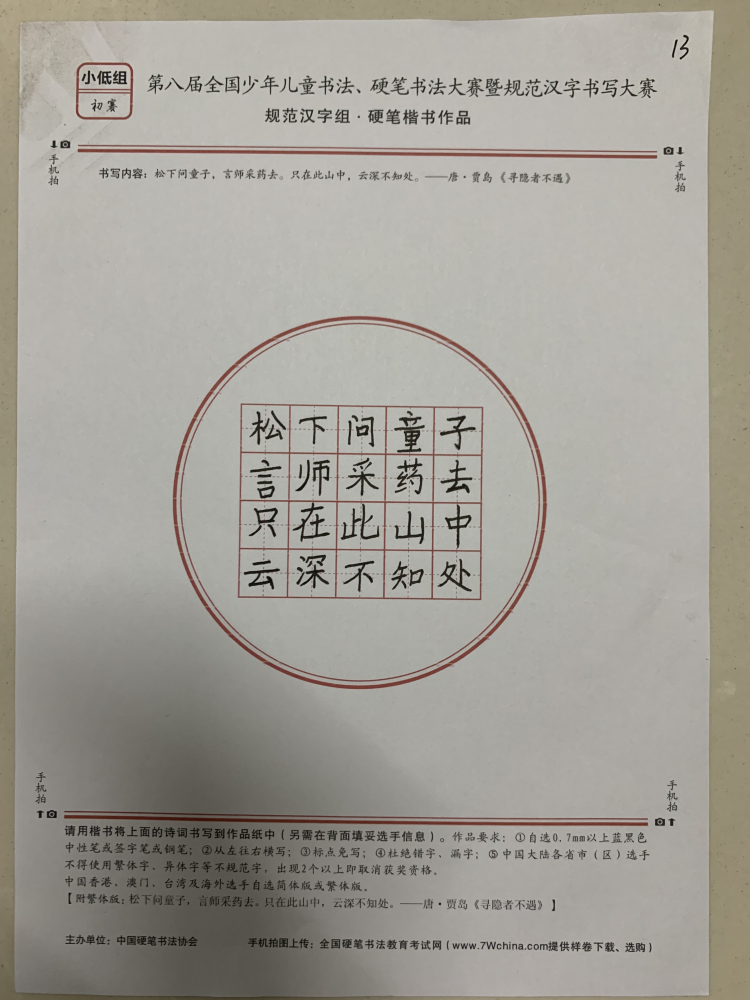 13
小低组
初赛
第八届全国少年儿童书法、硬笔书法大赛暨规范汉字书写大赛
规范汉字组·硬笔楷书作品
手机拍
手机拍
书写内容：松下问童子，言师采药去。只在此山中，云深不知处。——唐·贾岛《寻隐者不遇》
松下问童子
言师采药去
只在此山中
云深不知处
手机拍
手机拍
请用楷书将上面的诗词书写到作品纸中（另需在背面填妥选手信息）。作品要求：①自选0.7mm以上蓝黑色
中性笔或签字笔或钢笔；②从左往右横写；③标点免写；④杜绝错字、漏字；⑤中国大陆各省市（区）选手
不得使用繁体字、异体字等不规范字，出现2个以上即取消获奖资格。
中国香港、澳门、台湾及海外选手自选简体版或繁体版。
【附繁体版：松下问童子，言师采药去。只在此山中，云深不知处。——唐·贾岛《寻隐者不遇》】
主办单位：中国硬笔书法协会 手机拍图上传：全国硬笔书法教育考试网（www.7Wchina.com提供样卷下载、选购）